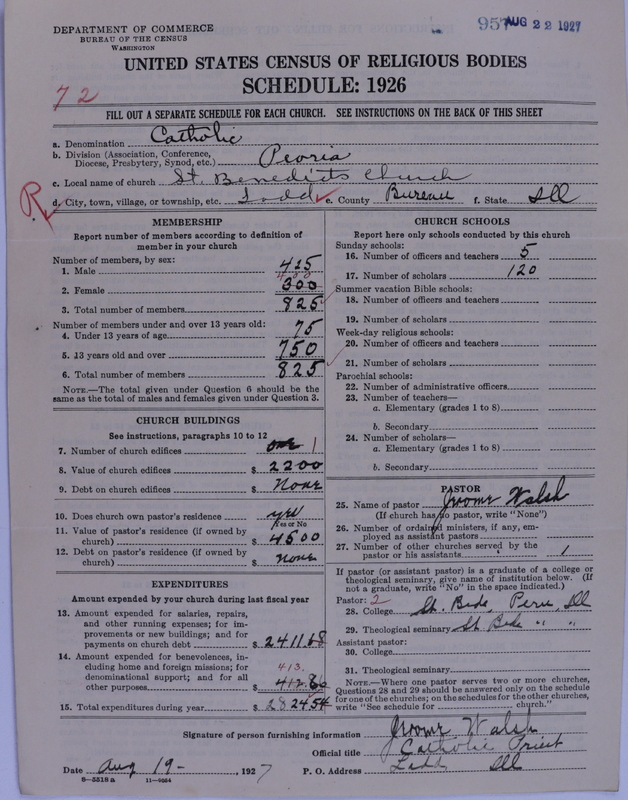 DEPARTMENT OF COMMERCE
BUREAU OF THE CENSUS
WASHINGTON
957 AUG 22 1927
UNITED STATES CENSUS OF RELIGIOUS BODIES
SCHEDULE: 1926
72
FILL OUT A SEPARATE SCHEDULE FOR EACH CHURCH. SEE INSTRUCTIONS ON THE BACK OF THIS SHEET
a. Denomination Catholic
b. Division (Association, Conference, Diocese, Presbytery, Synod, etc.) Peoria
c. Local name of church St. Benedicts Church
R
d. City, town, village, or township, etc. Ladd e. County Bureau f. State Ill
MEMBERSHIP
Report number of members according to definition of
member in your church
Number of members, by sex:
1. Male 425
2. Female 400 300
3. Total number of members 825
Number of members under and over 13 years old:
4. Under 13 years of age 75
5. 13 years old and over 750
6. Total number of members 825
NOTE.—The total given under Question 6 should be
same as the total of males and females given under Question 3.
CHURCH BUILDINGS
See instructions, paragraphs 10 to 12
7. Number of church edifices one 1
8. Value of church edifices $ 2200
9. Debt on church edifices $ None
10. Does church own pastor's residence yes
Yes or No
11. Value of pastor's residence (if owned by
church) $ 4500
12. Debt on pastor's residence (if owned by
church) $ none
EXPENDITURES
Amount expended by your church during last fiscal year
13. Amount expended for salaries, repairs,
and other running expenses; for im-
provements or new buildings; and for
payments on church debt $ 2411.68
14. Amount expended for benevolences, in-
cluding home and foreign missions; for
denominational support; and for all
other purposes $ 413. 412.86
15. Total expenditures during year $ 2824.54
CHURCH SCHOOLS
Report here only schools conducted by this church
Sunday schools:
16. Number of officers and teachers 5
17. Number of scholars 120
Summer vacation Bible schools:
18. Number of officers and teachers
19. Number of scholars
Week-day religious schools:
20. Number of officers and teachers
21. Number of scholars
Parochial schools:
22. Number of administrative officers
23. Number of teachers—
a. Elementary (grades 1 to 8)
b. Secondary
24. Number of scholars—
a. Elementary (grades 1 to 8)
b. Secondary $
PASTOR
25. Name of pastor Jerome Walsh
(If church has no pastor, write "None")
26. Number of ordained ministers, if any, em-
ployed as assistant pastors
27. Number of other churches served by the
pastor or his assistants 1
If pastor (or assistant pastor) is a graduate of a college or
theological seminary, give name of institution below. (If
not a graduate, write "No" in the space indicated.)
Pastor: 2
28. College St. Bede, Peru, Ill
29. Theological seminary St Bede " "
Assistant pastor:
30. College
31. Theological seminary
NOTE.—Where one pastor serves two or more churches,
Questions 28 and 29 should be answered only on the schedule
for one of the churches; on the schedules for the other churches,
write "See schedule for church."
Signature of person furnishing information Jerome Walsh
Official title Catholic Priest
Date Aug 19- , 1927 P. O. Address Ladd Ill
8-5518a 11-9664